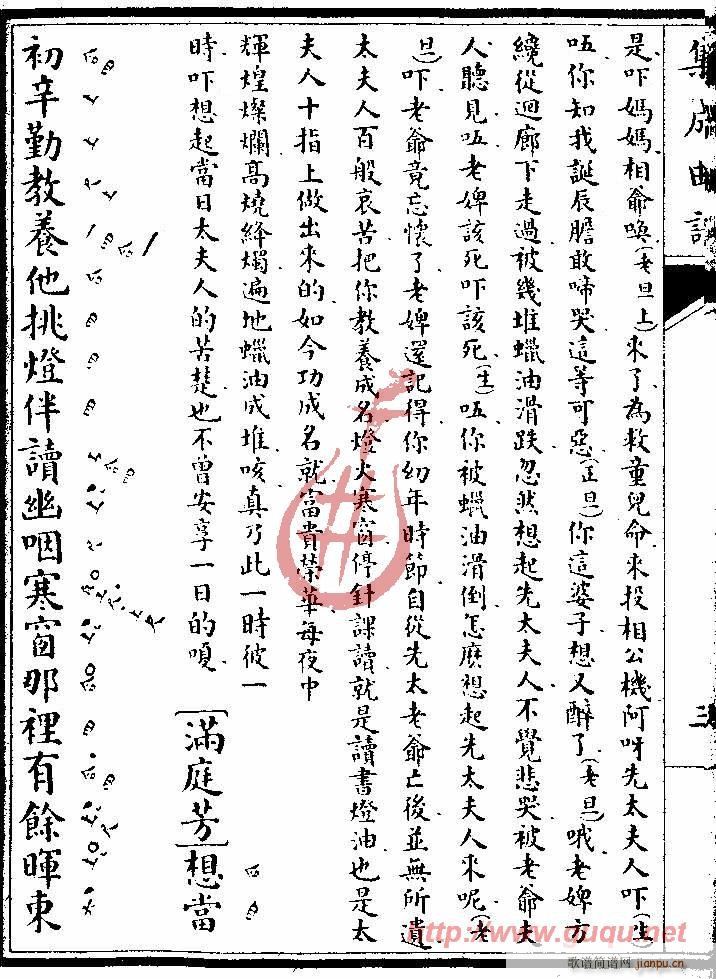 集成曲譜
三
是吓媽媽相爺喚(老旦上)來了為救童兒命來投相公機阿呀先太夫人吓(生)
唔你知我誕辰膽敢啼哭這等可惡(正旦)你這婆子想又醉了(老旦)哦老婢方
纔從迴廊下走過被幾堆蠟油滑跌忽然想起先太夫人不覺悲哭被老爺夫
人聽見唔老婢該死吓該死(生)唔你被蠟油滑倒怎麼想起先太夫人來呢(老
旦)吓老爺竟忘懷了老婢還記得你幼年時節自從先太老爺亡後並無所遺
太夫人百般哀苦把你教養成名燈火寒窗停針課讀就是讀書燈油也是太
夫人十指上做出來的如今功成名就富貴榮華每夜中
輝煌燦爛高燒絳燭遍地蠟油成堆咳真乃此一時彼一
時吓想起當日太夫人的苦楚也不曾安享一日的嗄
[滿庭芳]想當
初辛勤教養他挑燈伴讀幽咽寒窗那裡有餘暉東
http://www.guqu.net
歌谱简谱网
jianpu.cn